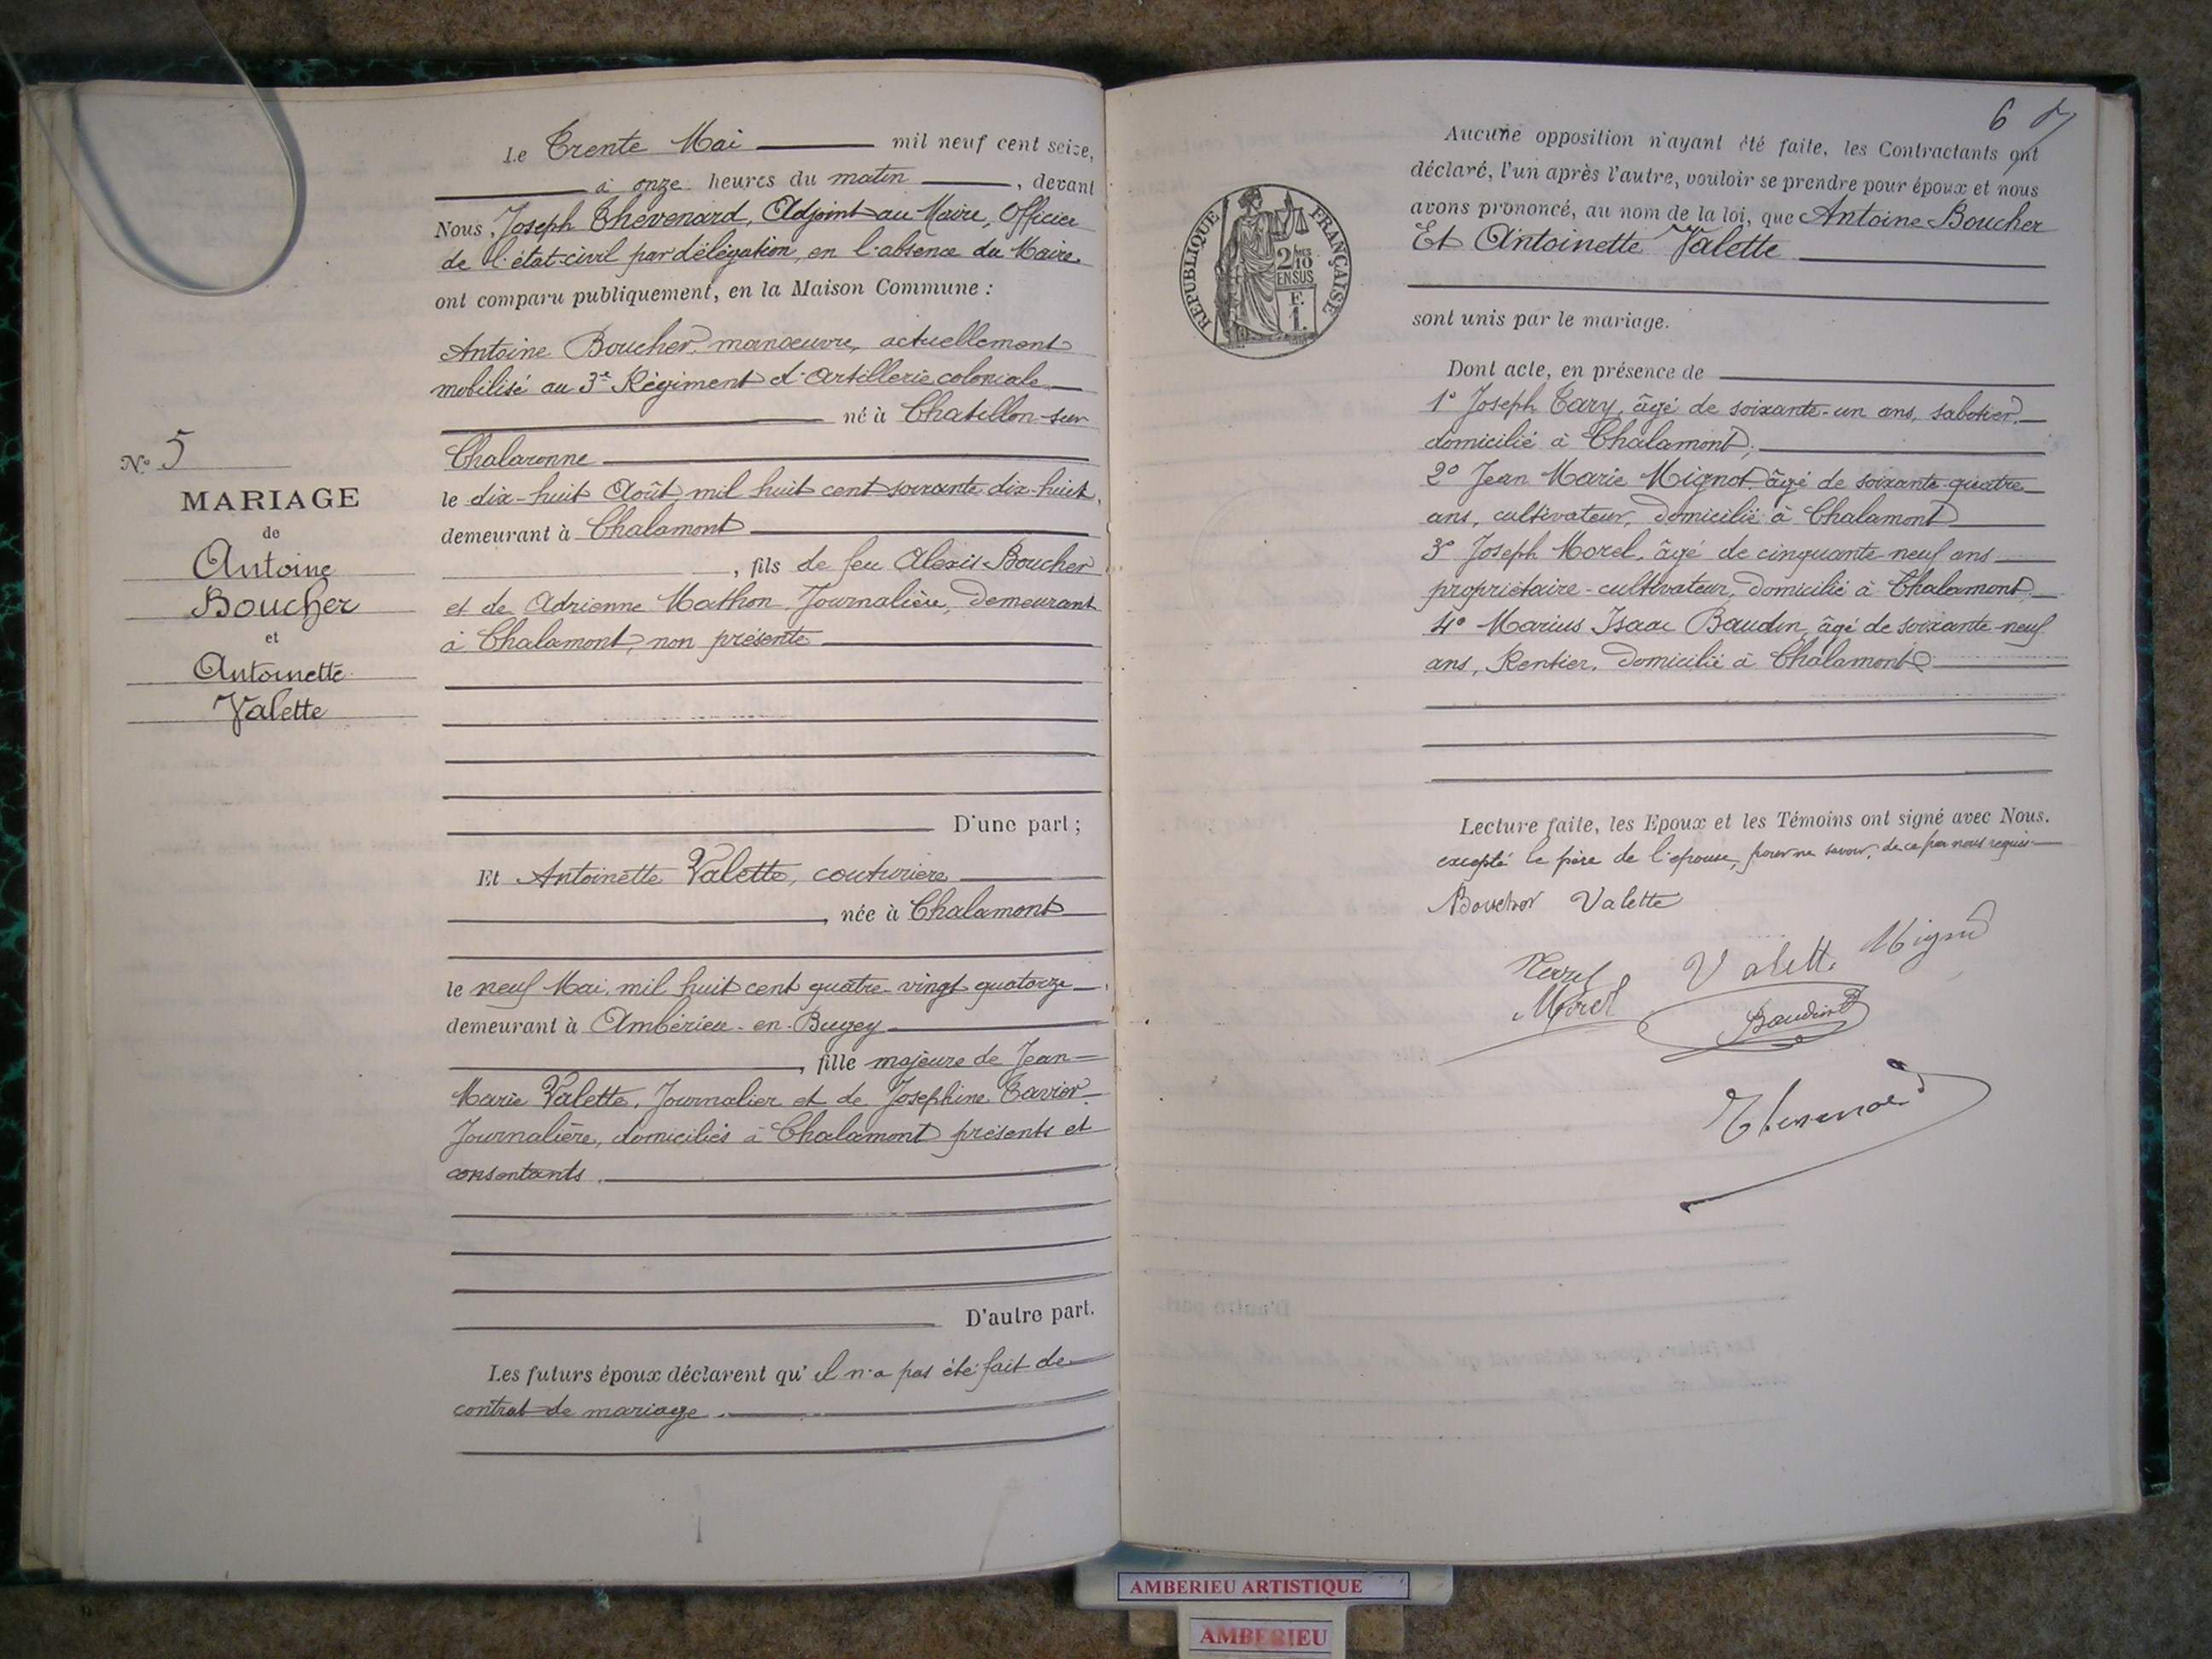 Nº 5
MARIAGE
de
Antoine
Boucher
et
Antoinette
Valette
Le Trente Mai mil neuf cent seize,
à onze heures du matin, devant
Nous, Joseph Thévenard, Adjoint au Maire, Officier
de l'état-civil par délégation, en l'absence du Maire.
ont comparu publiquement, en la Maison Commune :
Antoine Boucher, manœuvre, actuellement
mobilisé au 3e Régiment d'Artillerie coloniale
né à Chatillon-sur
Chalaronne
le dix-huit Août mil huit cent soixante-dix-huit,
demeurant à Chalamont
, fils de feu Alexis Boucher
et de Adrienne Mathon, Journalière, demeurant
à Chalamont, non présente
D'une part ;
Et Antoinette Valette, couturière
, née à Chalamont
le neuf Mai mil huit cent quatre-vingt quatorze,
demeurant à Ambérieu-en-Bugey
, fille majeure de Jean=
Marie Valette, Journalier et de Josephine
Journalière, domiciliés à Chalamont présents et
consentants.
D'autre part.
Les futurs époux déclarent qu'il n'a pas été fait de
contrat de mariage.
6
RÉPUBLIQUE FRANÇAISE
2/10
EN SUS
F.
1.
Aucune opposition n'ayant été faite, les Contractants ont
déclaré, l'un après l'autre, vouloir se prendre pour époux et nous
avons prononcé, au nom de la loi, que Antoine Boucher
Et Antoinette Valette
sont unis par le mariage.
Dont acte, en présence de
1º Joseph Tary, âgé de soixante-un ans, sabotier,
domicilié à Chalamont;
2º Jean Marie Mignot âgé de soixante-quatre
ans, cultivateur, domicilié à Chalamont
3º Joseph Morel, âgé de cinquante-neuf ans
propriétaire-cultivateur, domicilié à Chalamont,
4º Marius Isaac Baudin, âgé de soixante-neuf
ans, Rentier, domicilié à Chalamont
Lecture faite, les Epoux et les Témoins ont signé avec Nous.
excepté le père de l'épouse, pour ne savoir, de ce par nous requis
Boucher Valette
Valette Mignot
Morel Baudin
Thevenard
AMBERIEU ARTISTIQUE
AMBERIEU